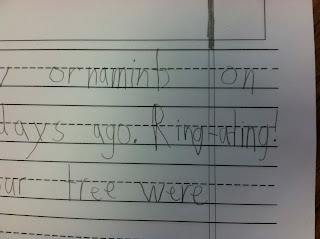 ornamints on
days ago. Ring-ating!
ur tree were